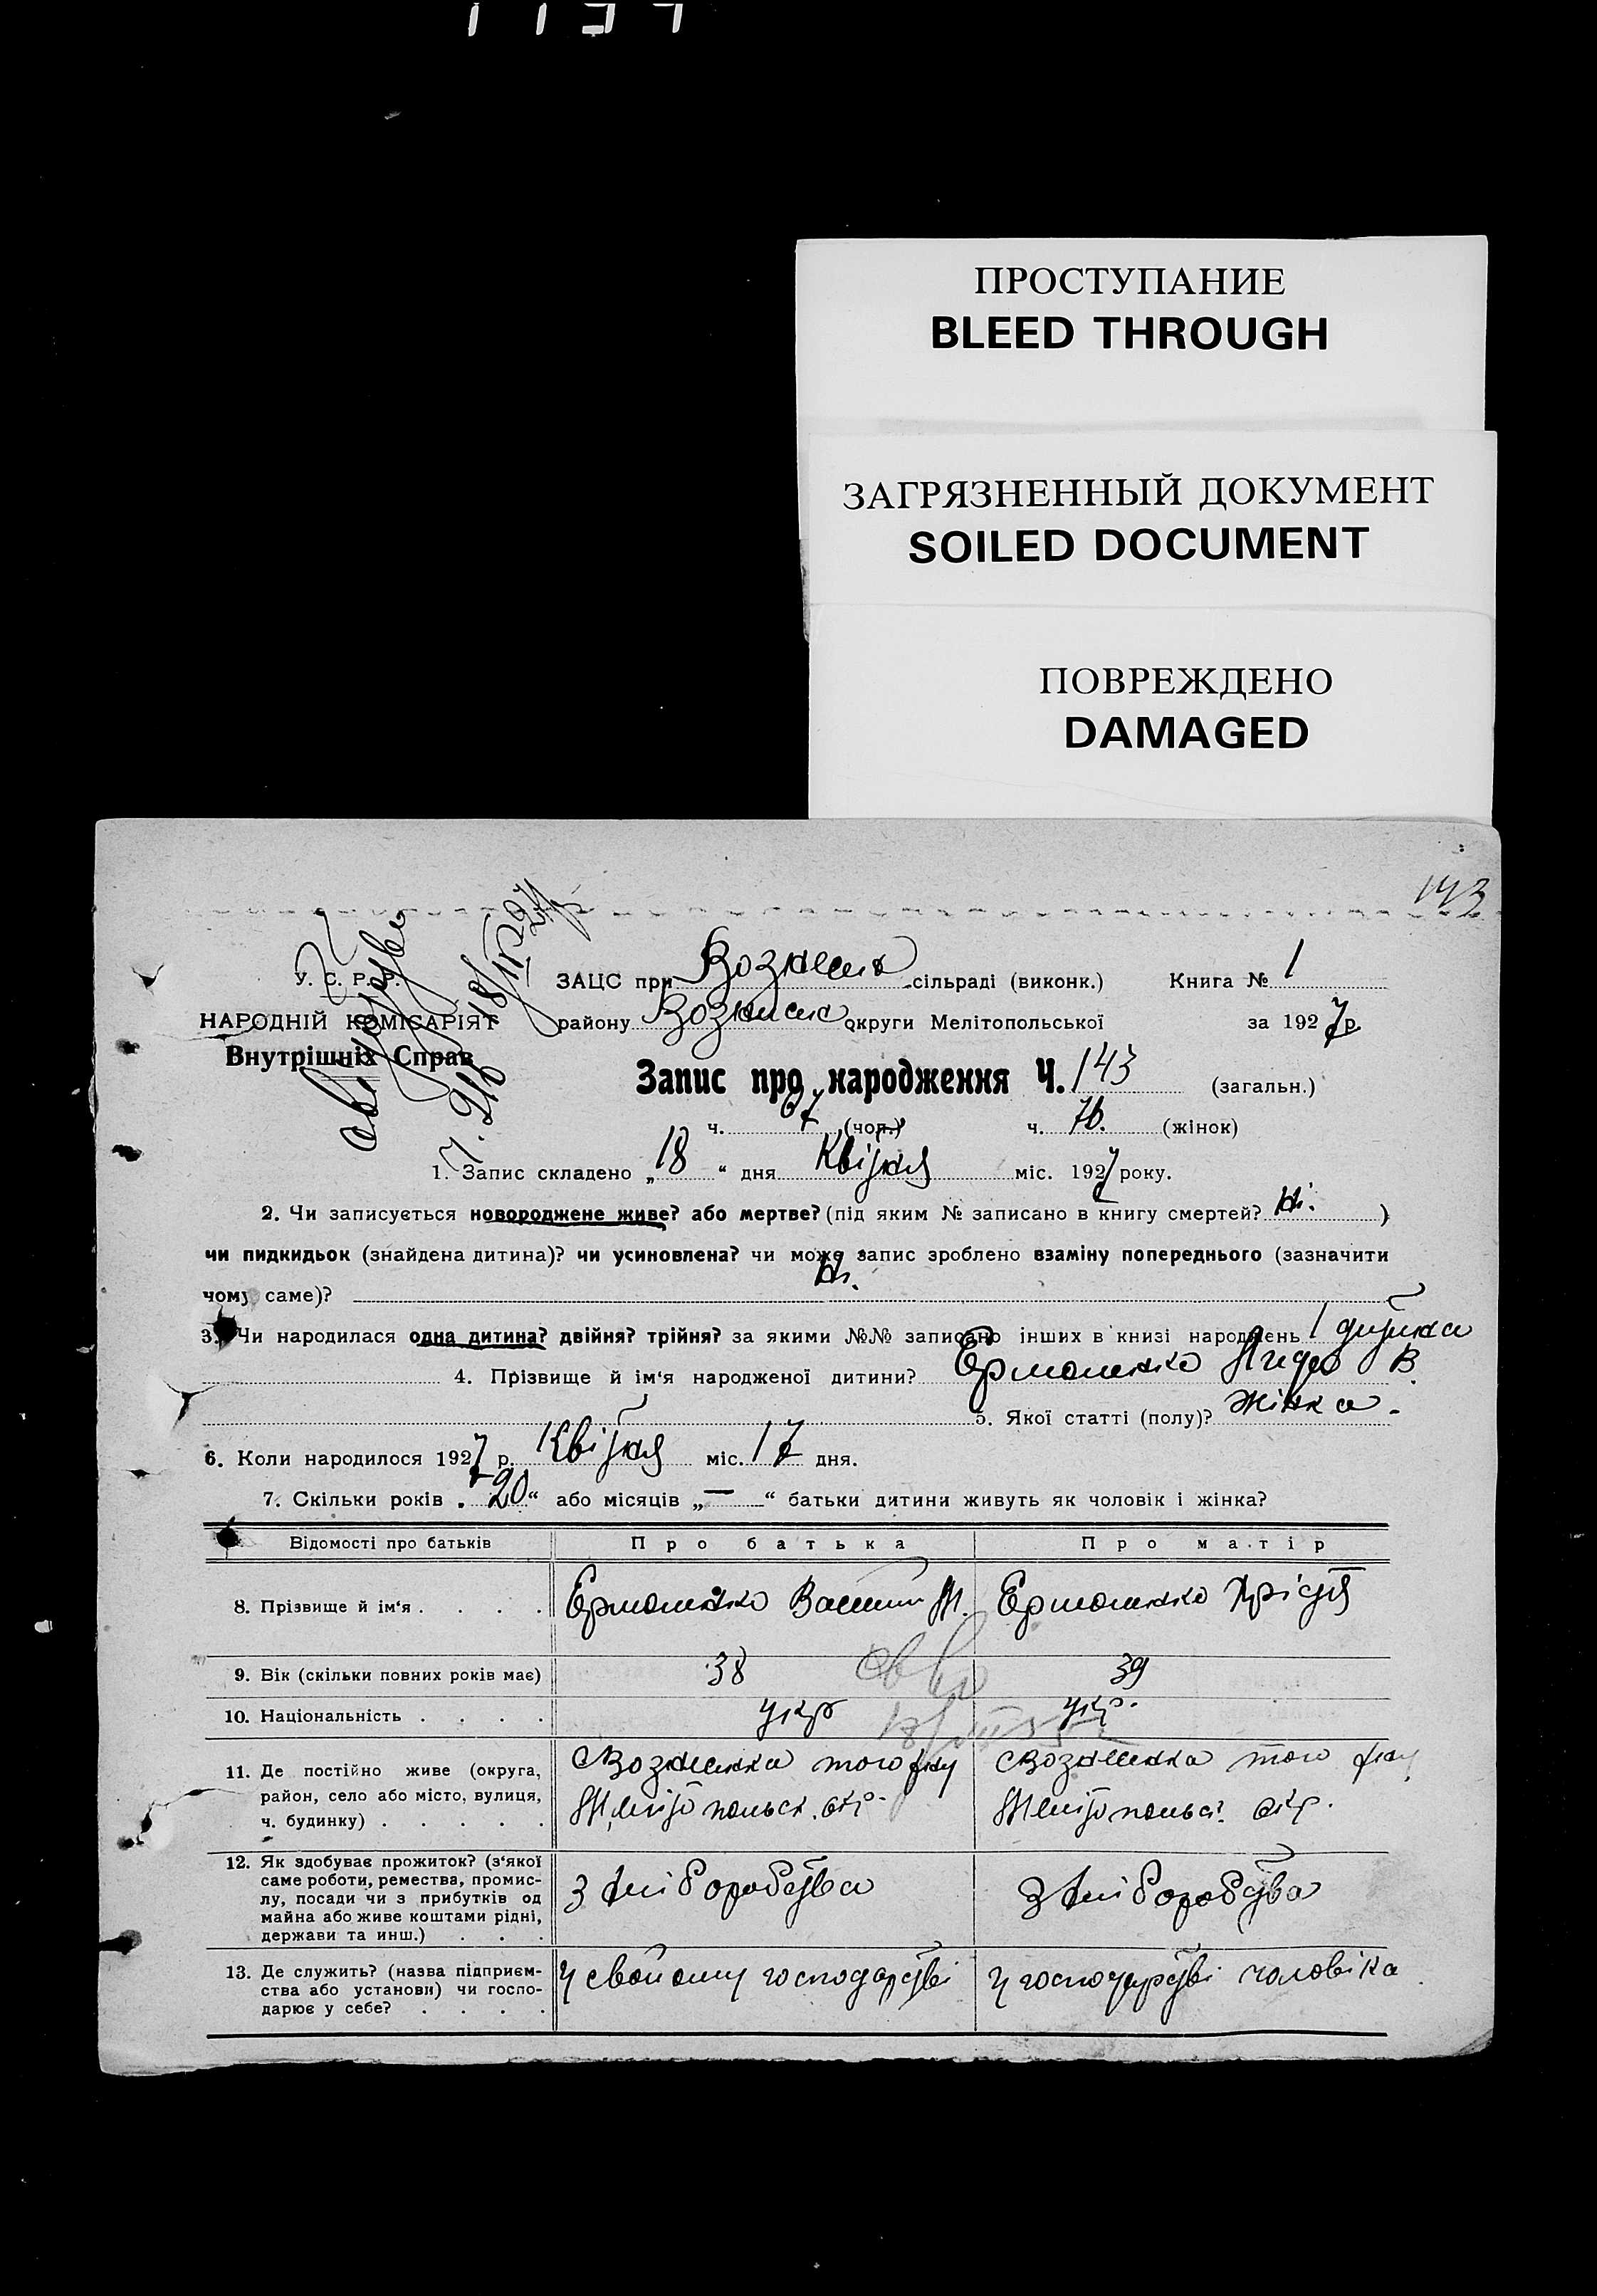 ПРОСТУПАНИЕ
BLEED THROUGH
ЗАГРЯЗНЕННЫЙ ДОКУМЕНТ
SOILED DOCUMENT
ПОВРЕЖДЕНО
DAMAGED
143
У. С. Р. Р.
НАРОДНІЙ КОМІСАРІЯТ
Внутрішніх Справ
ЗАЦС при Вознесен сільраді (виконк.) Книга № 1
району округи Мелітопольської за 1927 р.
Запис про народження Ч. 143 (загальн.)
ч. 67 (чол.) ч. 76. (жінок)
1. Запис складено „18“ дня Квітня міс. 1927 року.
2. Чи записується новороджене живе? або мертве? (під яким № записано в книгу смертей? ні. )
чи пидкидьок (знайдена дитина)? чи усиновлена? чи може запис зроблено взаміну попереднього (зазначити
чому саме)? ні.
3. Чи народилася одна дитина? двійня? трійня? за якими №№ записано інших в книзі народжень 1 дитина
4. Прізвище й ім‘я народженої дитини? Ермоленко Лидія В.
5. Якої статті (полу)? Жінка.
6. Коли народилося 1927 р. Квітня міс. 17 дня.
7. Скільки років „20“ або місяців „—“ батьки дитини живуть як чоловік і жінка?
Відомості про батьків Про батька Про матір
8. Прізвище й ім‘я . . . . Ермоленко М. Ермоленко
9. Вік (скільки повних років має) 38 39
10. Національність . . . . укр укр.
11. Де постійно живе (округа,
район, село або місто, вулиця,
ч. будинку) . . . . .
Вознесенка того р-ну Вознесенка того р-ну
Мелітопольськ. окр. Мелітопольськ. окр.
12. Як здобуває прожиток? (з‘якої
саме роботи, ремества, промис-
лу, посади чи з прибутків од
майна або живе коштами рідні,
держави та инш.) . . .
З хліборобства З хліборобства
13. Де служить? (назва підприєм-
ства або установи) чи госпо-
дарює у себе? . . . .
У свойому господарстві У господарстві чоловіка